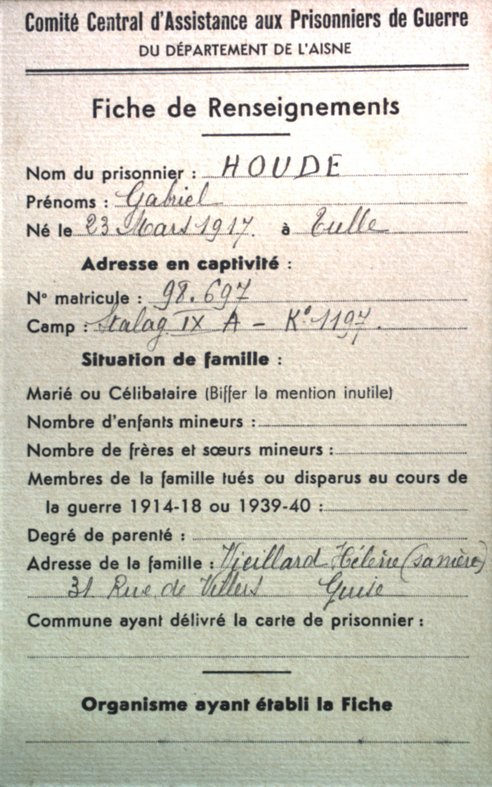 Comité Central d'Assistance aux Prisonniers de Guerre
DU DÉPARTEMENT DE L'AISNE
Fiche de Renseignements
Nom du prisonnier : HOUDE
Prénoms : Gabriel
Né le 23 Mars 1917. à Tulle
Adresse en captivité :
N° matricule : 98.697
Camp : Stalag IX A - K° 1197.
Situation de famille :
Marié ou Célibataire (Biffer la mention inutile)
Nombre d'enfants mineurs :
Nombre de frères et sœurs mineurs :
Membres de la famille tués ou disparus au cours de
la guerre 1914-18 ou 1939-40 :
Degré de parenté :
Adresse de la famille : Vieillard Hélène (sa mère)
31 Rue de Villers Guise
Commune ayant délivré la carte de prisonnier :
Organisme ayant établi la Fiche